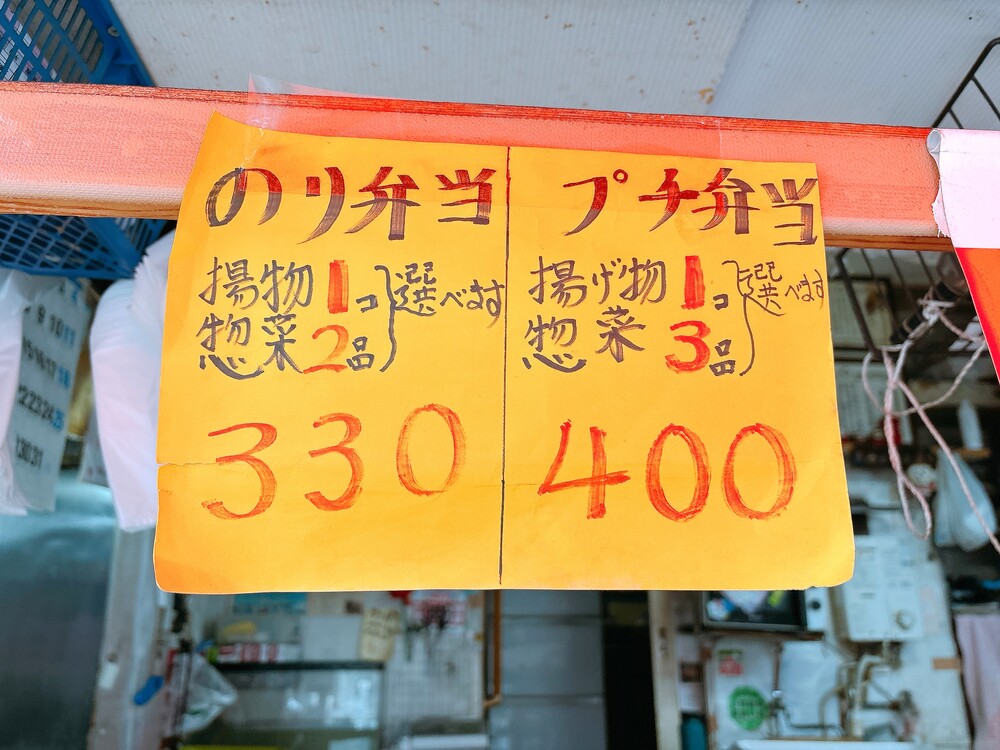 のり弁当
揚物1コ
惣菜2品
選べます
330
プチ弁当
揚げ物1コ
惣菜3品
選べます
400
9 10 11
15 16 17 18
22 23 24 25
30 31